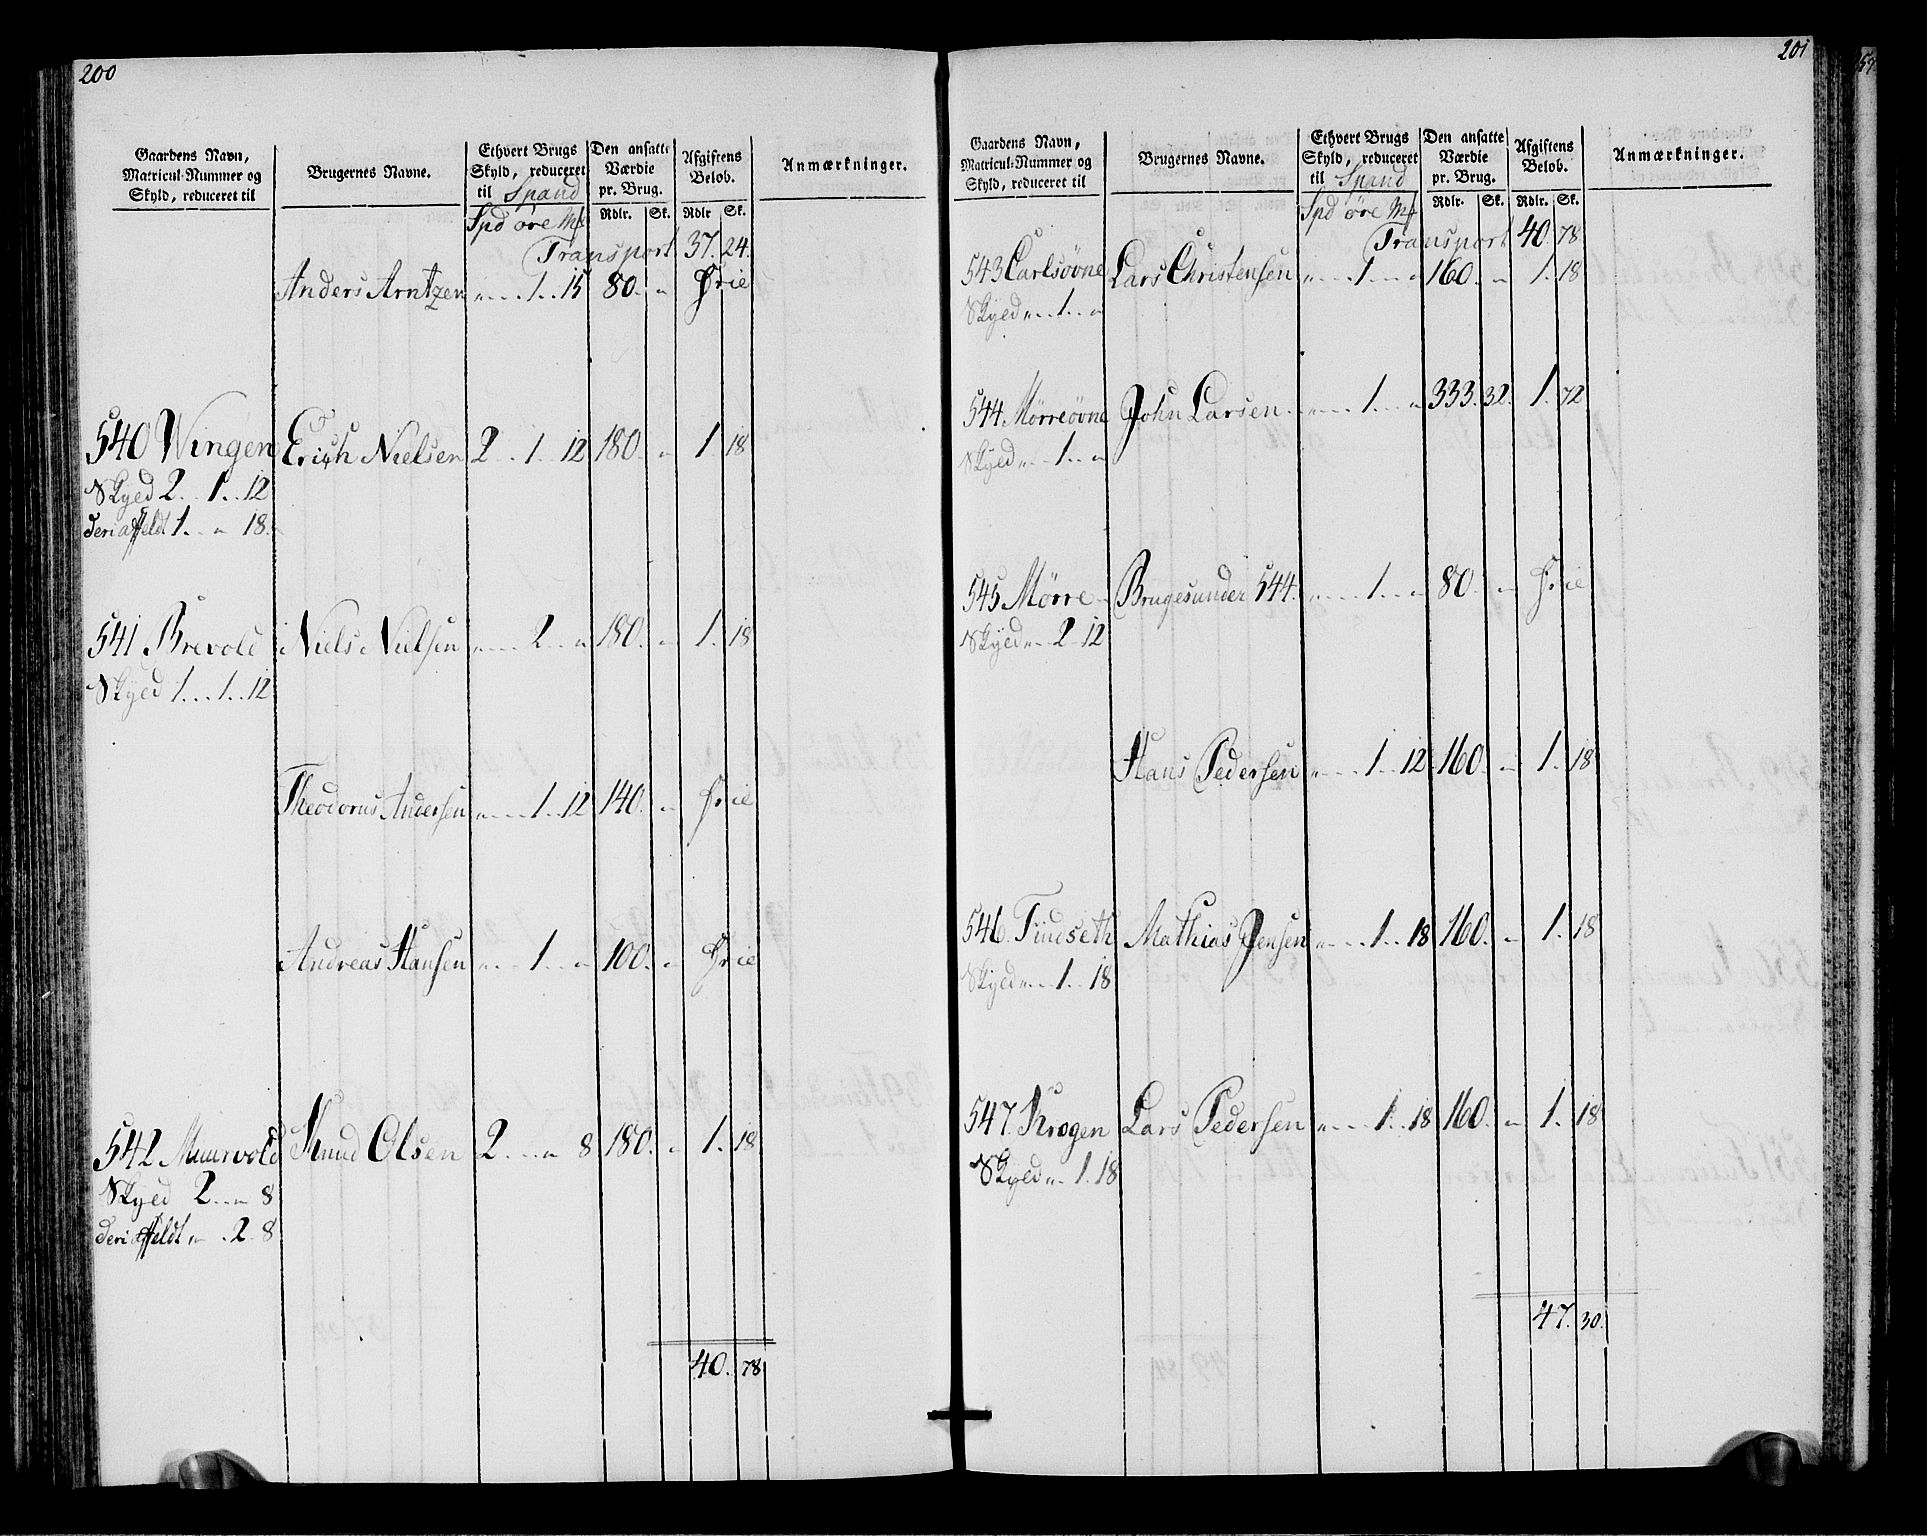 200
Gaardens Navn, Matricul-Nummer og Skyld, reduceret til
Brugernes Navne.
Ethvert Brugs Skyld, reduceret til Spand
Den ansatte Værdie pr. Brug.
Afgiftens Beløb.
Anmærkninger.
Spd øre Mk Rdlr. Sk. Rdlr Sk.
Transport 37. 24.
Anders Arntzen „ 1 15 80. „ Frie
540 Wingen Erich Nielsen 2 1 12 180. „ 1 18
Skyld 2 1 12
deri affeldt 1. „ 18.
541 Brevold Niels Nielsen „ 2 „ 180. „ 1. 18
Skyld 1 1 12
Theodorus Andersen „ 1 12 140. „ Frie
Andreas Hansen „ 1 „ 100. „ Frie
542 Muurvold Knud Olsen 2 „ 8 180. „ 1. 18
Skyld 2 „ 8
deri affeldt „ 2 8
40. 78
201
Gaardens Navn, Matricul-Nummer og Skyld, reduceret til
Brugernes Navne.
Ethvert Brugs Skyld, reduceret til Spand
Den ansatte Værdie pr. Brug.
Afgiftens Beløb.
Anmærkninger.
Spd øre Mk Rdlr. Sk. Rdlr. Sk.
Transport 40. 78
543 Carlsøvne Lars Christensen „ 1 „ 160. „ 1. 18
Skyld „ 1 „
544 Mørreøvne John Larsen „ 1 „ 333. 32. 1. 72
Skyld „ 1 „
545 Mørre Bruges under 544. „ 1 „ 80. „ Frie
Skyld „ 2 12
Hans Pedersen „ 1 12 160. „ 1. 18
546. Tindseth Mathias Jensen „ 1 18 160. „ 1. 18
Skyld „ 1 18
547. Krogen Lars Pedersen „ 1 18 160. „ 1. 18
Skyld „ 1 18
47. 30.